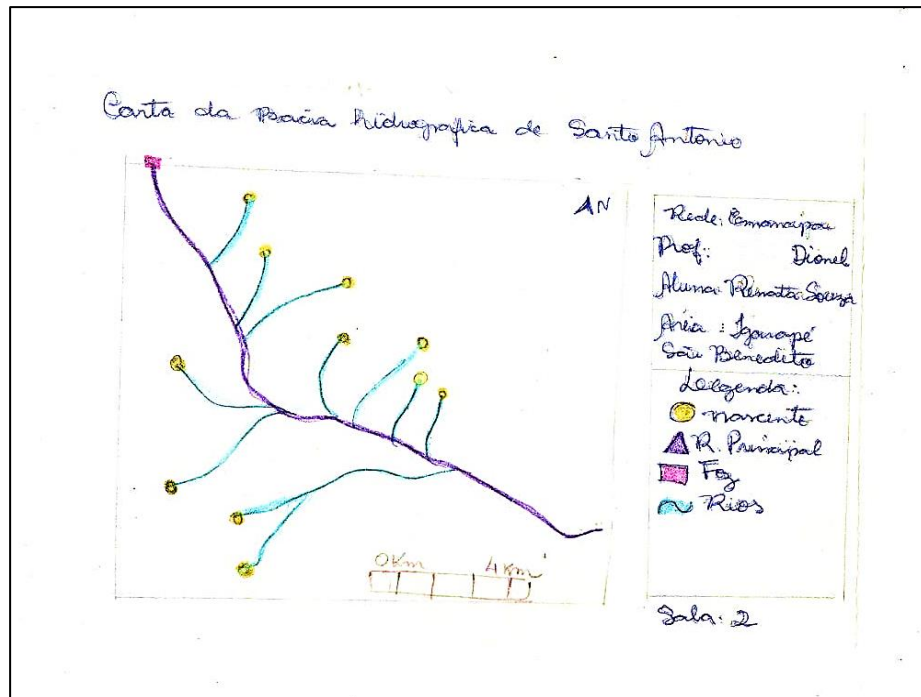 Carta da Bacia hidrografica de Santo Antonio
AN
0Km 4Km
Rede:
Prof: Dionel
Aluna: Renata Souza
Aréa: Igarapé
São Benedito
Leegenda:
nascente
R. Principal
Foz
Rios
Sala: 2